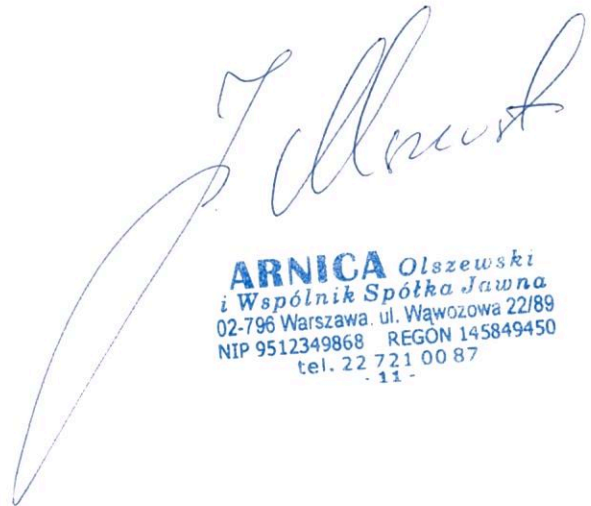 ARNICA Olszewski
i Wspólnik Spółka Jawna
02-796 Warszawa, ul. Wąwozowa 22/89
NIP 9512349868 REGON 145849450
tel. 22 721 00 87
- 11 -